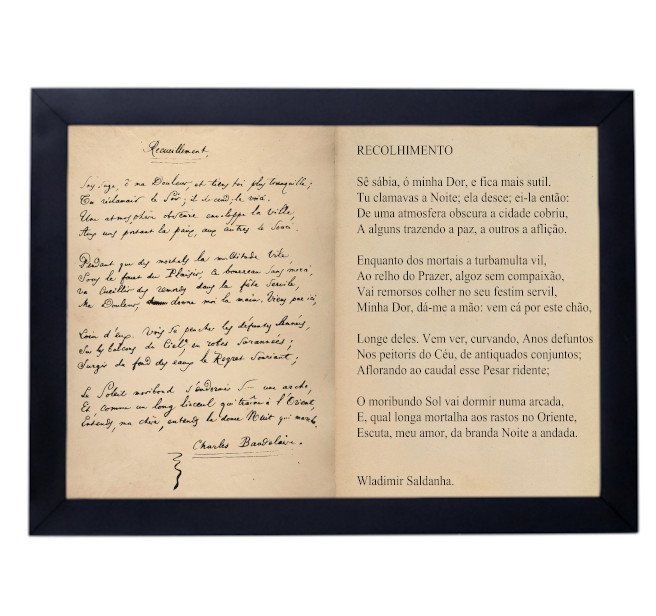 Recueillement.
Sois sage, ô ma Douleur, et tiens toi plus tranquille;
Tu réclamais le Soir; il descend; le voici:
Une atmosphère obscure enveloppe la ville,
Aux uns portant la paix, aux autres le souci.
Pendant que des mortels la multitude vile
Sous le fouet du Plaisir, ce bourreau sans merci,
Va cueillir des remords dans la fête servile,
Ma Douleur, donne moi la main; Viens par ici,
Loin d'eux. Vois se pencher les défuntes Années,
Sur les balcons du Ciel, en robes surannées;
Surgir du fond des eaux le Regret Souriant;
Le Soleil moribond s'endormir une arche,
Et, comme un long linceul qui traîne à l'Orient,
Entends, ma chère, entends la douce Nuit qui marche.
Charles Baudelaire.
RECOLHIMENTO
Sê sábia, ó minha Dor, e fica mais sutil.
Tu clamavas a Noite; ela desce; ei-la então:
De uma atmosfera obscura a cidade cobriu,
A alguns trazendo a paz, a outros a aflição.
Enquanto dos mortais a turbamulta vil,
Ao relho do Prazer, algoz sem compaixão,
Vai remorsos colher no seu festim servil,
Minha Dor, dá-me a mão: vem cá por este chão,
Longe deles. Vem ver, curvando, Anos defuntos
Nos peitoris do Céu, de antiquados conjuntos;
Aflorando ao caudal esse Pesar ridente;
O moribundo Sol vai dormir numa arcada,
E, qual longa mortalha aos rastos no Oriente,
Escuta, meu amor, da branda Noite a andada.
Wladimir Saldanha.